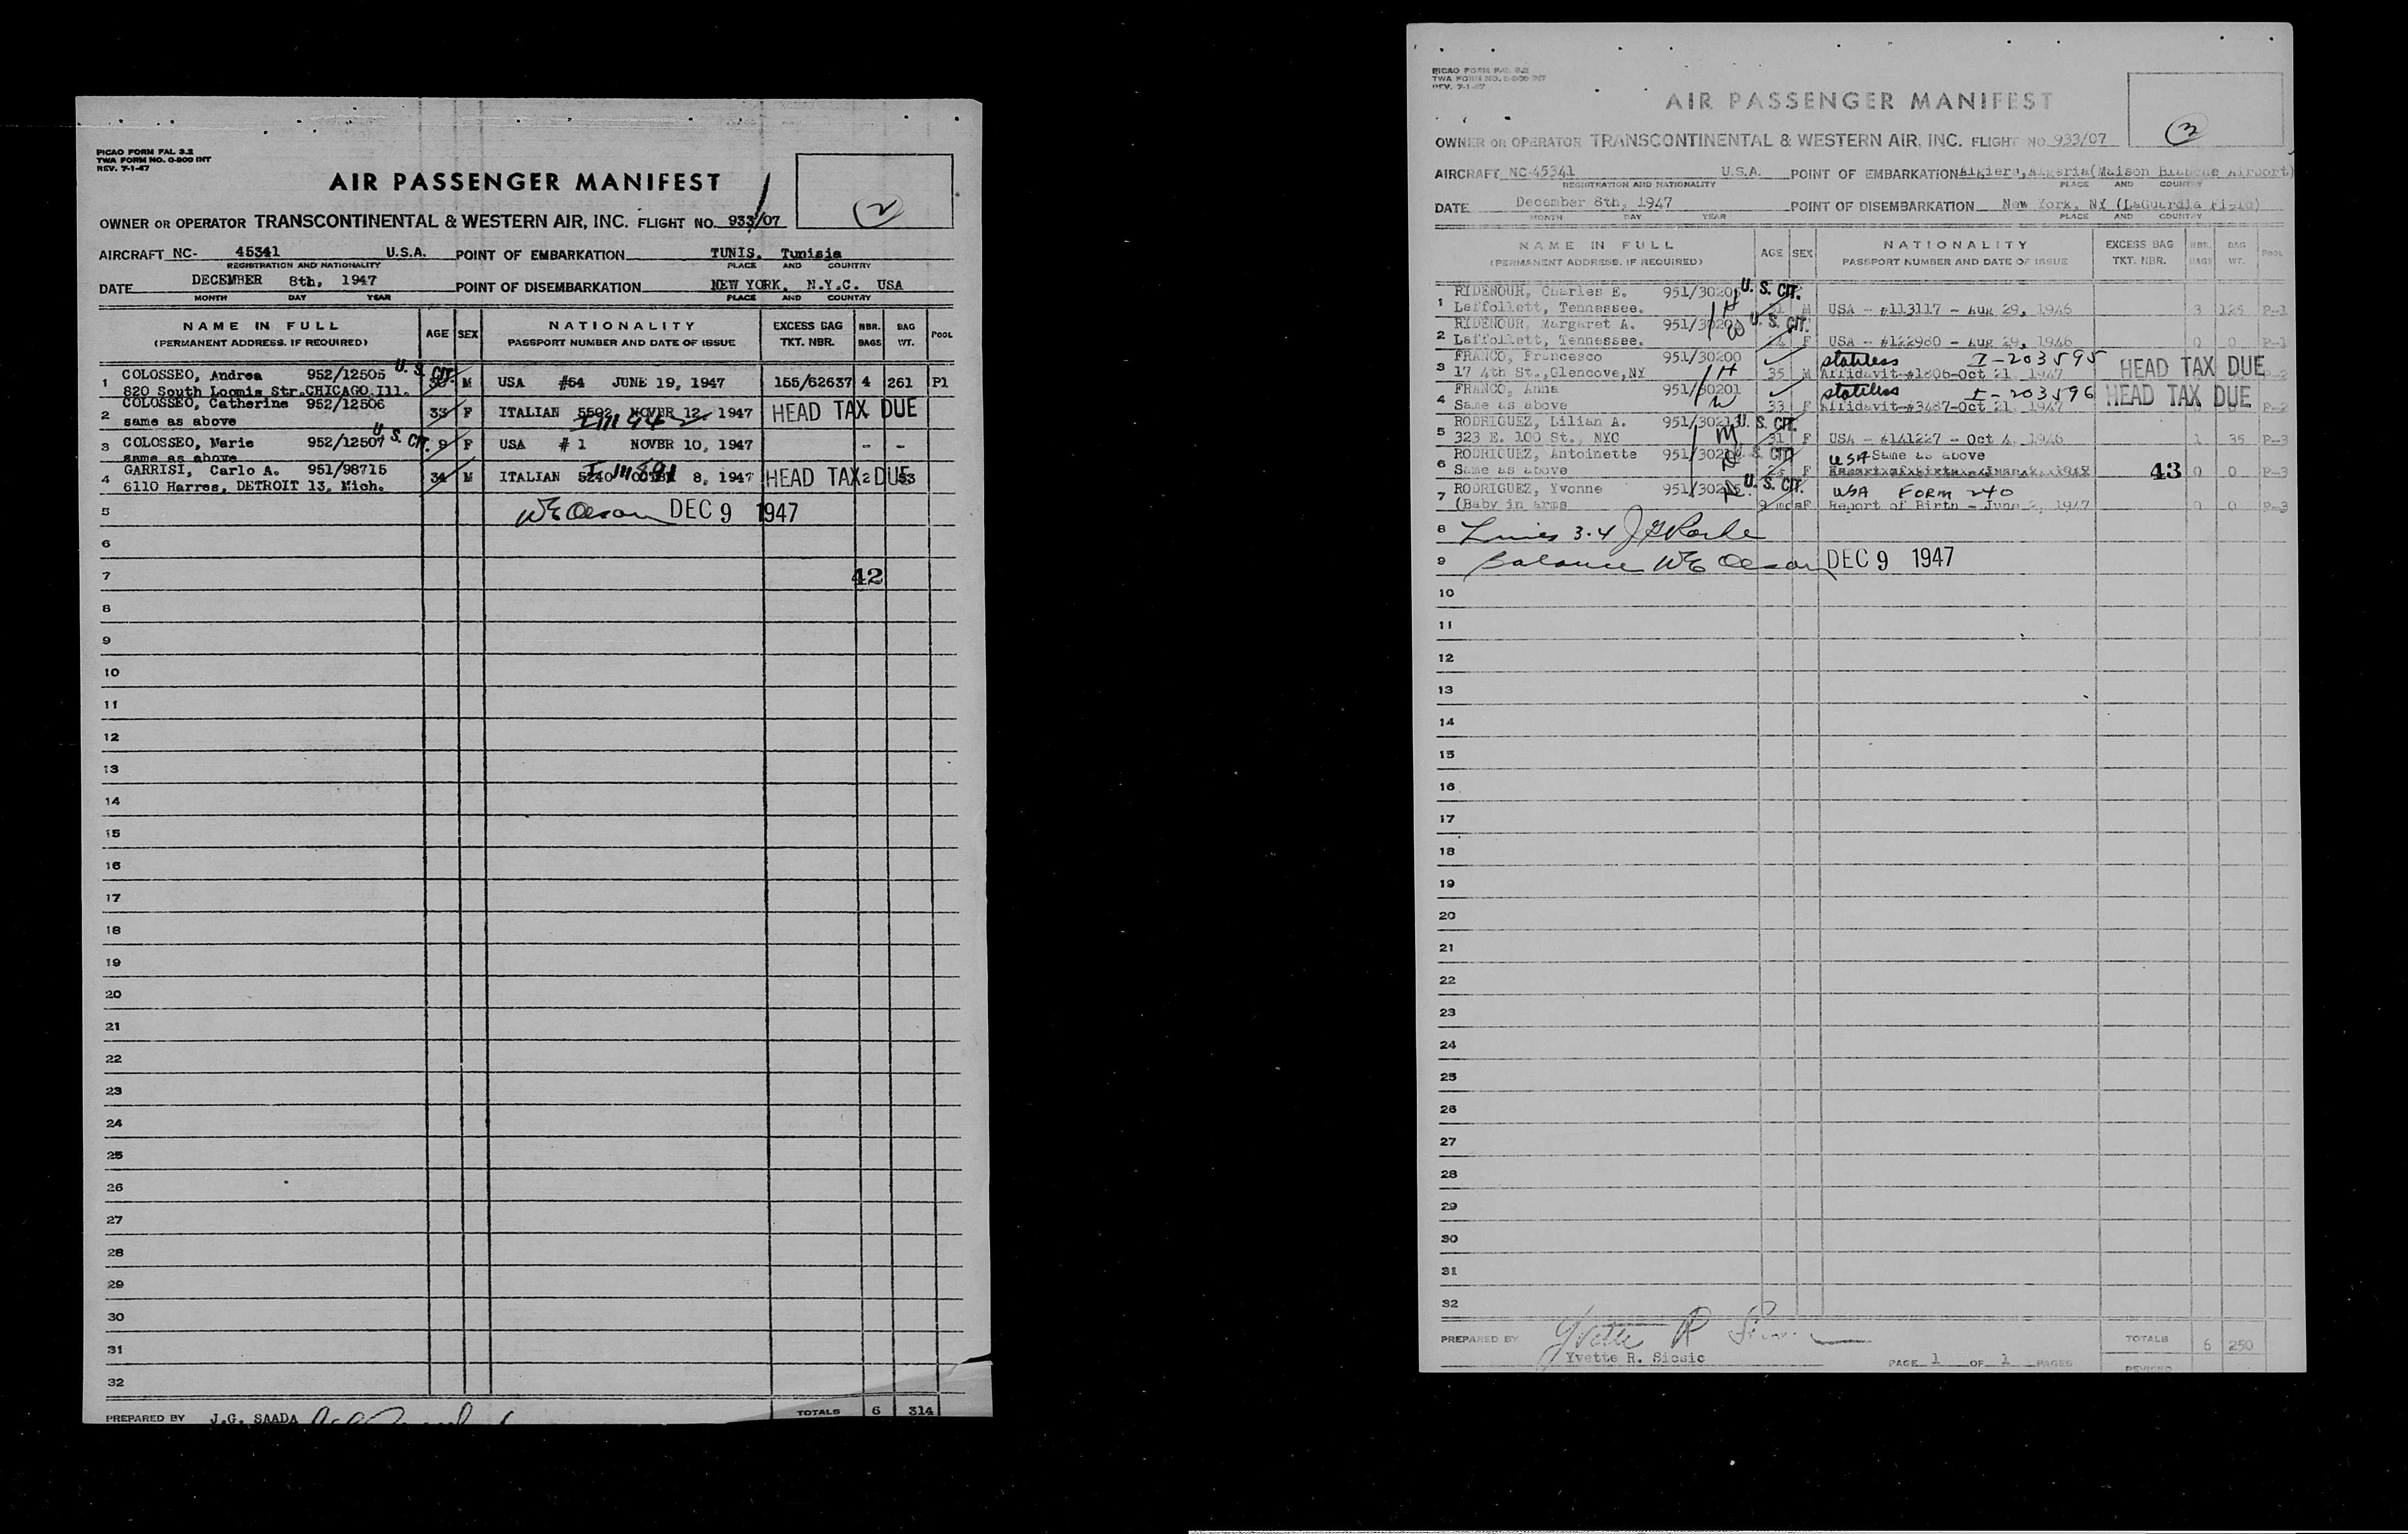 PICAO FORM FAL 3.2
TWA FORM NO. O-800 INT
REV. 7-1-47
AIR PASSENGER MANIFEST
2
OWNER OR OPERATOR TRANSCONTINENTAL & WESTERN AIR, INC. FLIGHT NO. 933/07
AIRCRAFT NC- 45341 U.S.A. POINT OF EMBARKATION TUNIS, Tunisia
REGISTRATION AND NATIONALITY PLACE AND COUNTRY
DATE DECEMBER 8th, 1947 POINT OF DISEMBARKATION NEW YORK, N.Y.C. USA
MONTH DAY YEAR PLACE AND COUNTRY
NAME IN FULL AGE SEX NATIONALITY EXCESS BAG NBR. BAG POOL
(PERMANENT ADDRESS, IF REQUIRED) PASSPORT NUMBER AND DATE OF ISSUE TKT. NBR. BAGS WT.
1 COLOSSEO, Andrea 952/12505 U.S. CIT. M USA #64 JUNE 19, 1947 155/62637 4 261 P1
820 South Loomis Str.CHICAGO.Ill.
2 COLOSSEO, Catherine 952/12506 33 F ITALIAN 5502 NOVBR 12, 1947 HEAD TAX DUE
same as above
3 COLOSSEO, Marie 952/12507 U.S. CIT. 9 F USA # 1 NOVBR 10, 1947 - -
same as above
4 GARRISI, Carlo A. 951/98715 34 M ITALIAN 5240 8, 1947 HEAD TAX DUE 2 53
6110 Harres, DETROIT 13, Mich.
5 WE Olson DEC 9 1947
6
7 42
8
9
10
11
12
13
14
15
16
17
18
19
20
21
22
23
24
25
26
27
28
29
30
31
32
PREPARED BY J.G. SAADA TOTALS 6 314
PICAO FORM FAL 3.2
TWA FORM NO. O-800 INT
REV. 7-1-47
AIR PASSENGER MANIFEST
OWNER OR OPERATOR TRANSCONTINENTAL & WESTERN AIR, INC. FLIGHT NO. 933/07
AIRCRAFT NC-45341 U.S.A. POINT OF EMBARKATION Algiers,Algeria(Maison Blanche Airport)
REGISTRATION AND NATIONALITY PLACE AND COUNTRY
DATE December 8th, 1947 POINT OF DISEMBARKATION New York, NY (LaGuardia Field)
MONTH DAY YEAR PLACE AND COUNTRY
NAME IN FULL AGE SEX NATIONALITY EXCESS BAG NBR. BAG POOL
(PERMANENT ADDRESS, IF REQUIRED) PASSPORT NUMBER AND DATE OF ISSUE TKT. NBR. BAGS WT.
RIDENOUR, Charles E. 951/30205 U.S. CIT.
1 Laffollett, Tennessee. M USA - #113117 - Aug 29, 1946 3 125 P-1
RYDENOUR, Margaret A. U.S. CIT.
2 Laffollett, Tennessee. 24 F USA - #122980 - Aug 29, 1946 0 0 P-1
FRANCO, Francesco 951/30200 stateless I-203595 HEAD TAX DUE
3 17 4th St.,Glencove,NY 35 M Affidavit-#1806-Oct 21, 1947 P-2
FRANCO, Anna 951/30201 stateless I-203596 HEAD TAX DUE
4 Same as above 33 F Affidavit-#3487-Oct 21, 1947 P-2
RODRIGUEZ, Lilian A. 951/30213 U.S. CIT.
5 323 E. 100 St., NYC 31 F USA - #141227 - Oct 4, 1946 1 35 P-3
RODRIGUEZ, Antoinette U.S. CIT. USA Same as above
6 Same as above F 43 0 0 P-3
RODRIGUEZ, Yvonne U.S. CIT. USA FORM 240
7 (Baby in arms 9 mos F Report of Birth - June 2, 1947 0 0 P-3
8 Lines 3-4
9 Balance WE Olson DEC 9 1947
10
11
12
13
14
15
16
17
18
19
20
21
22
23
24
25
26
27
28
29
30
31
32
PREPARED BY Yvette R. TOTALS 6 250
Yvette R. Sicsic PAGE 1 OF 1 PAGES REVISED